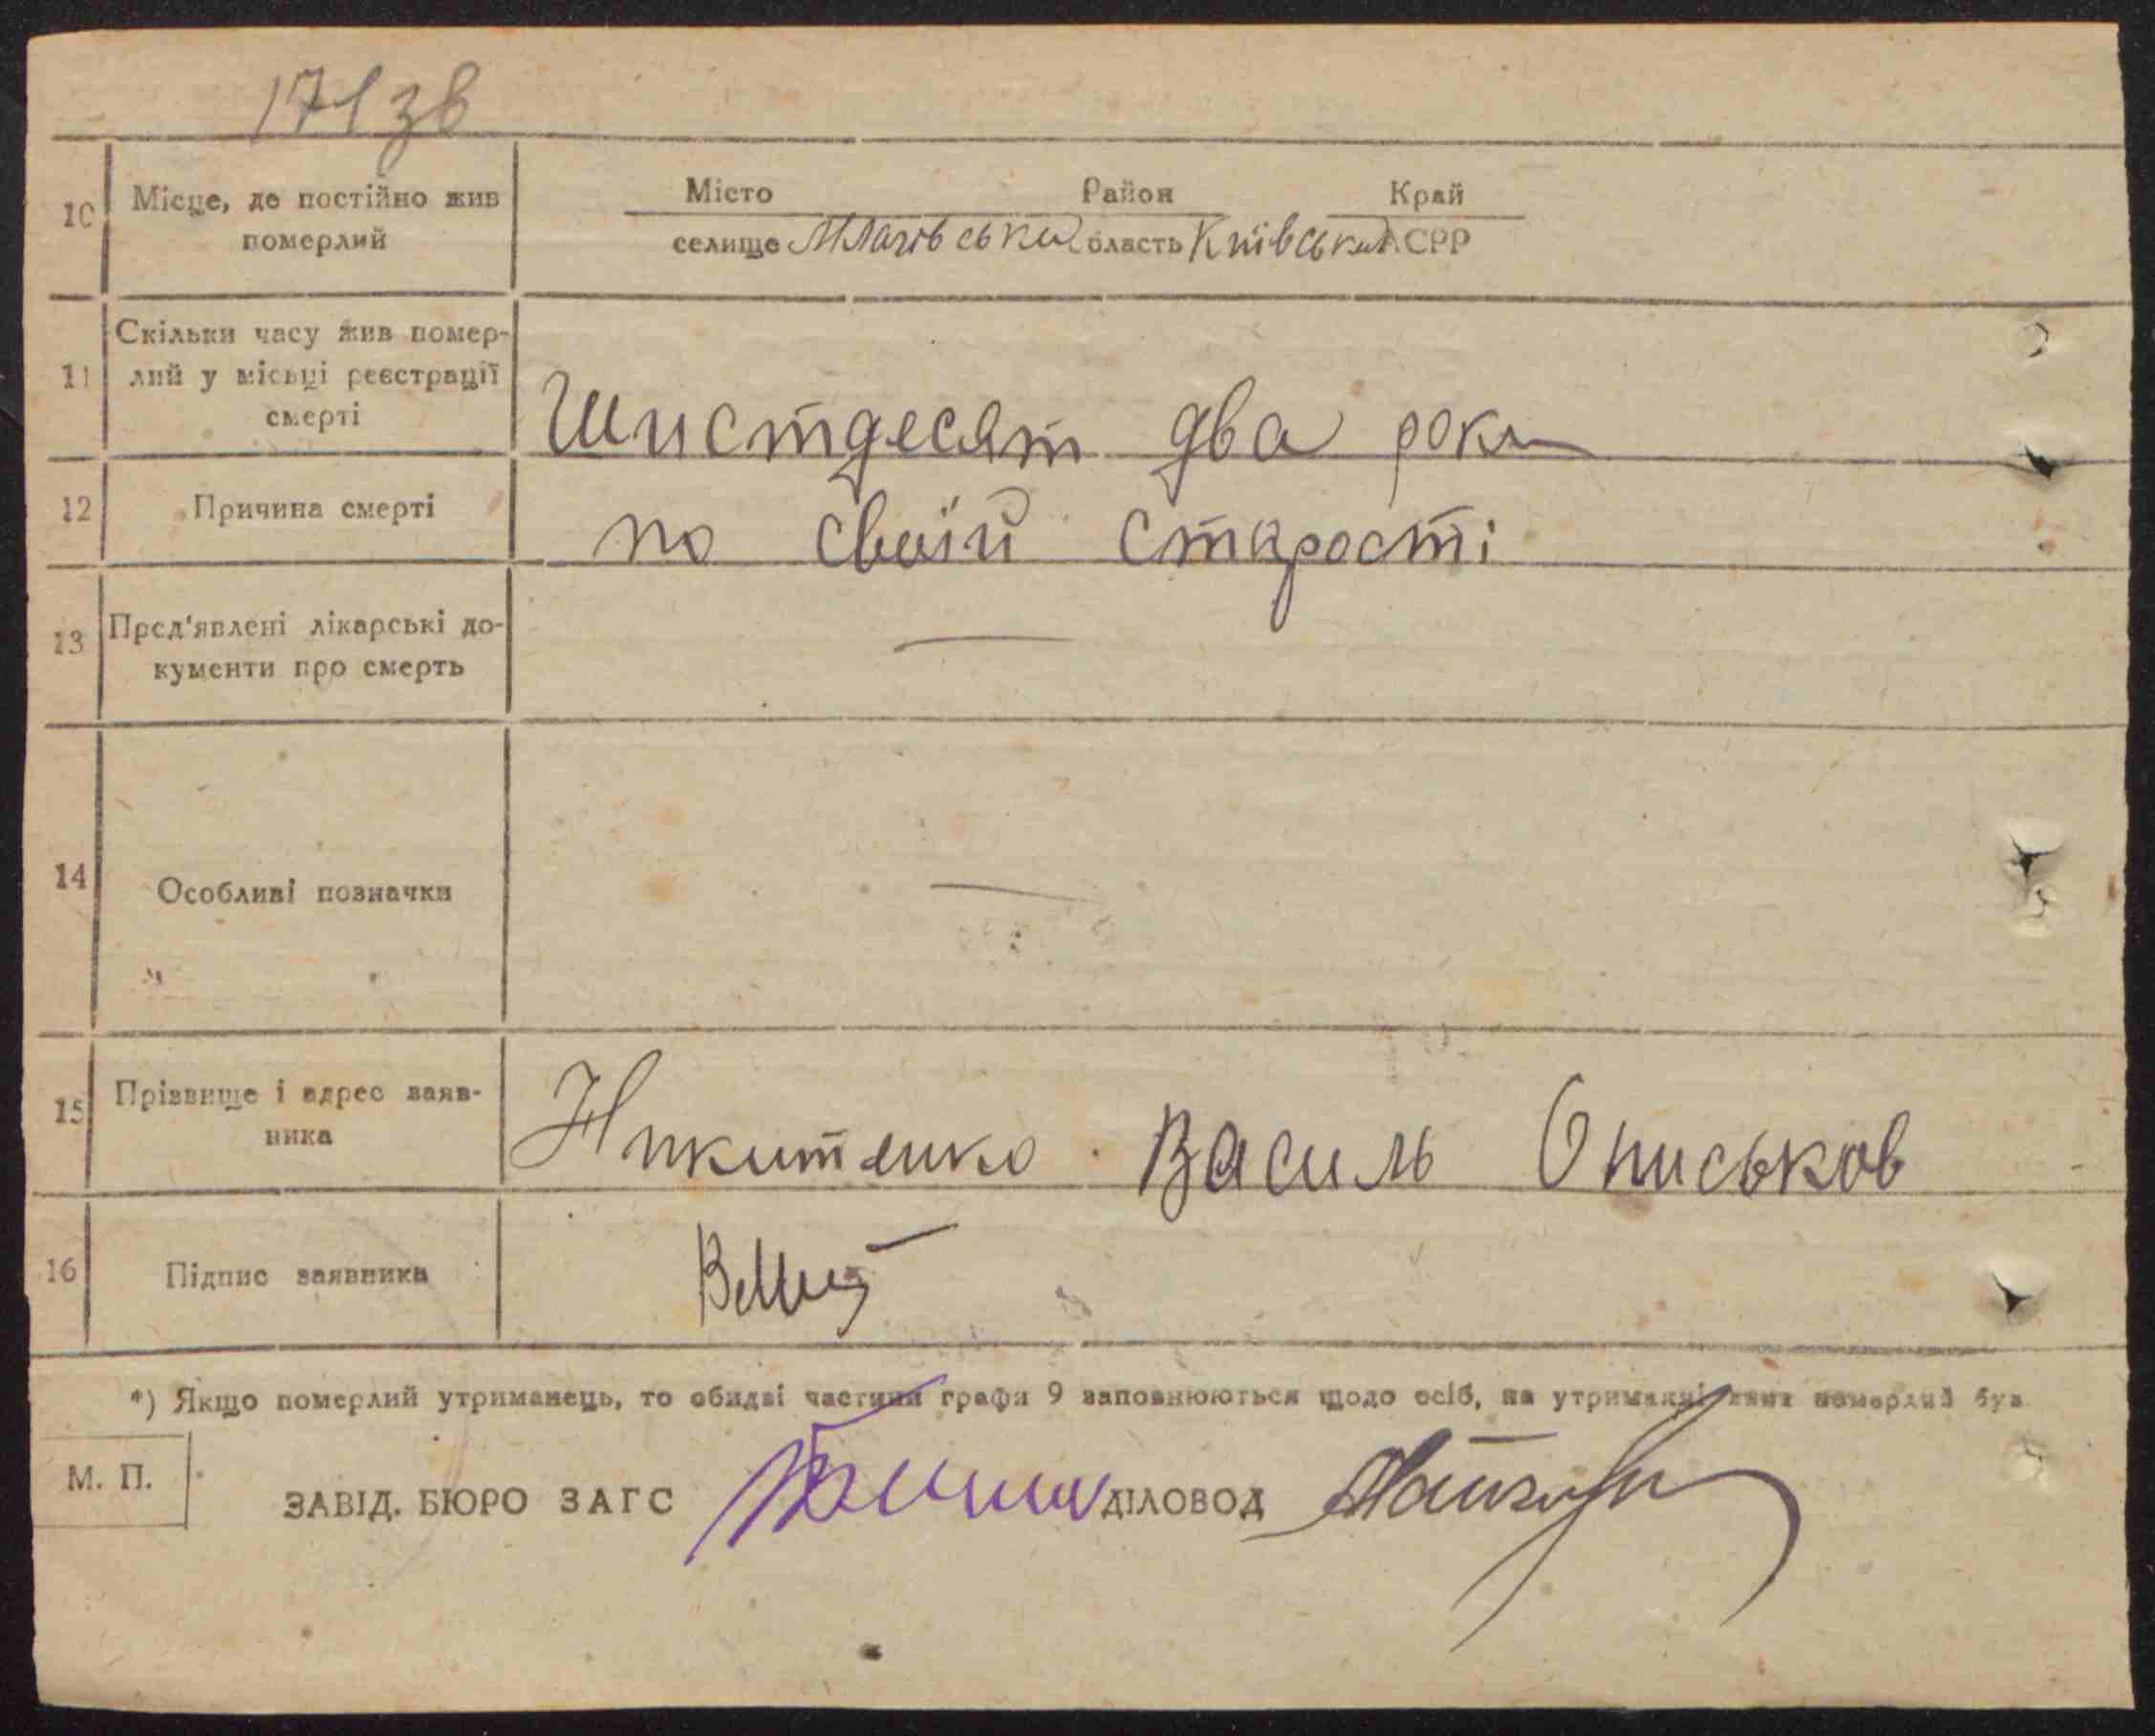 171зв
10 Місце, де постійно жив померлий
Місто Район Край
селище Млаговський область Київська АСРР
11 Скільки часу жив помер-
лий у місьці реєстрації
смерті
Шистдесят два роки
12 Причина смерті
по своїй старості
13 Пред'явлені лікарські до-
кументи про смерть
—
14 Особливі позначки
—
15 Прізвище і адрес заяв-
ника
Никитенко Василь Описьков
16 Підпис заявника
*) Якщо померлий утриманець, то обидві частини графи 9 заповнюються щодо осіб, на утриманні яких померлий був
М. П.
ЗАВІД. БЮРО ЗАГС ДІЛОВОД